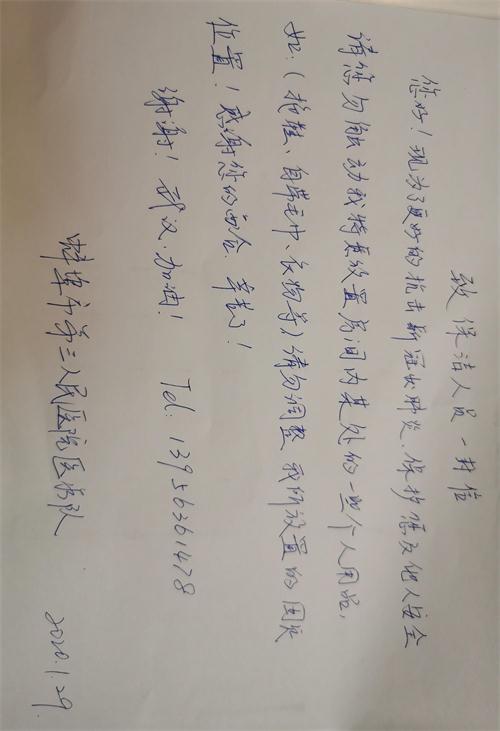 致保洁人员一封信
您好！现为了更好的抗击新冠状肺炎、保护您及他人安全
请您勿触动我特意放置房间内某处的一些个人用品,
如:(拖鞋、自带毛巾、衣物等)请勿调整我所放置的固定
位置！感谢您的配合 辛苦了！
谢谢！武汉加油！ Tel: 13956361478
蚌埠市第三人民医院医疗队
2020.1.29.